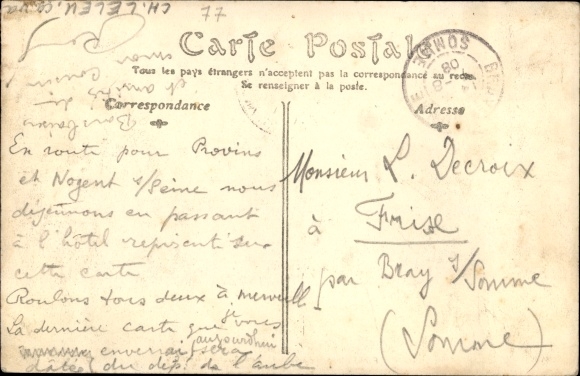 CH. LELEU
77
Carte Postale
Tous les pays étrangers n'acceptent pas la correspondance au recto
Se renseigner à la poste.
Correspondance
Adresse
En route pour Provins
et Nogent s/Seine nous
déjeunons en passant
à l'hôtel représenté sur
cette carte
Roulons tous deux à merveille
La dernière carte que je vous
enverrai sera aujourdhui
datée du dép. de l'aube
Bons baisers
et amitiés
cousin
Monsieur L. Decroix
à
Frise
par Bray s/Somme
(Somme)